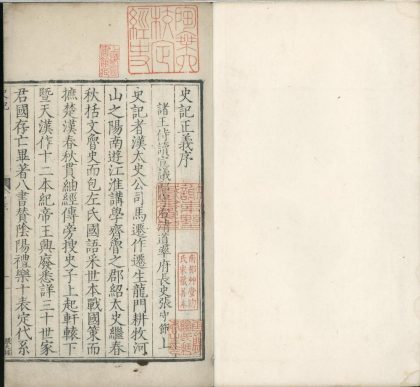 史記正義序
諸王侍讀宣議郎守右清道率府長史張守節上
史記者漢太史公司馬遷作遷生龍門耕牧河
山之陽南遊江淮講學齊魯之郡紹太史繼春
秋括文魯史而包左氏國語采世本戰國策而
摭楚漢春秋貫紬經傳旁搜史子上起軒轅下
暨天漢作十二本紀帝王興廢悉詳三十世家
君國存亡畢著八書贊陰陽禮樂十表定代系